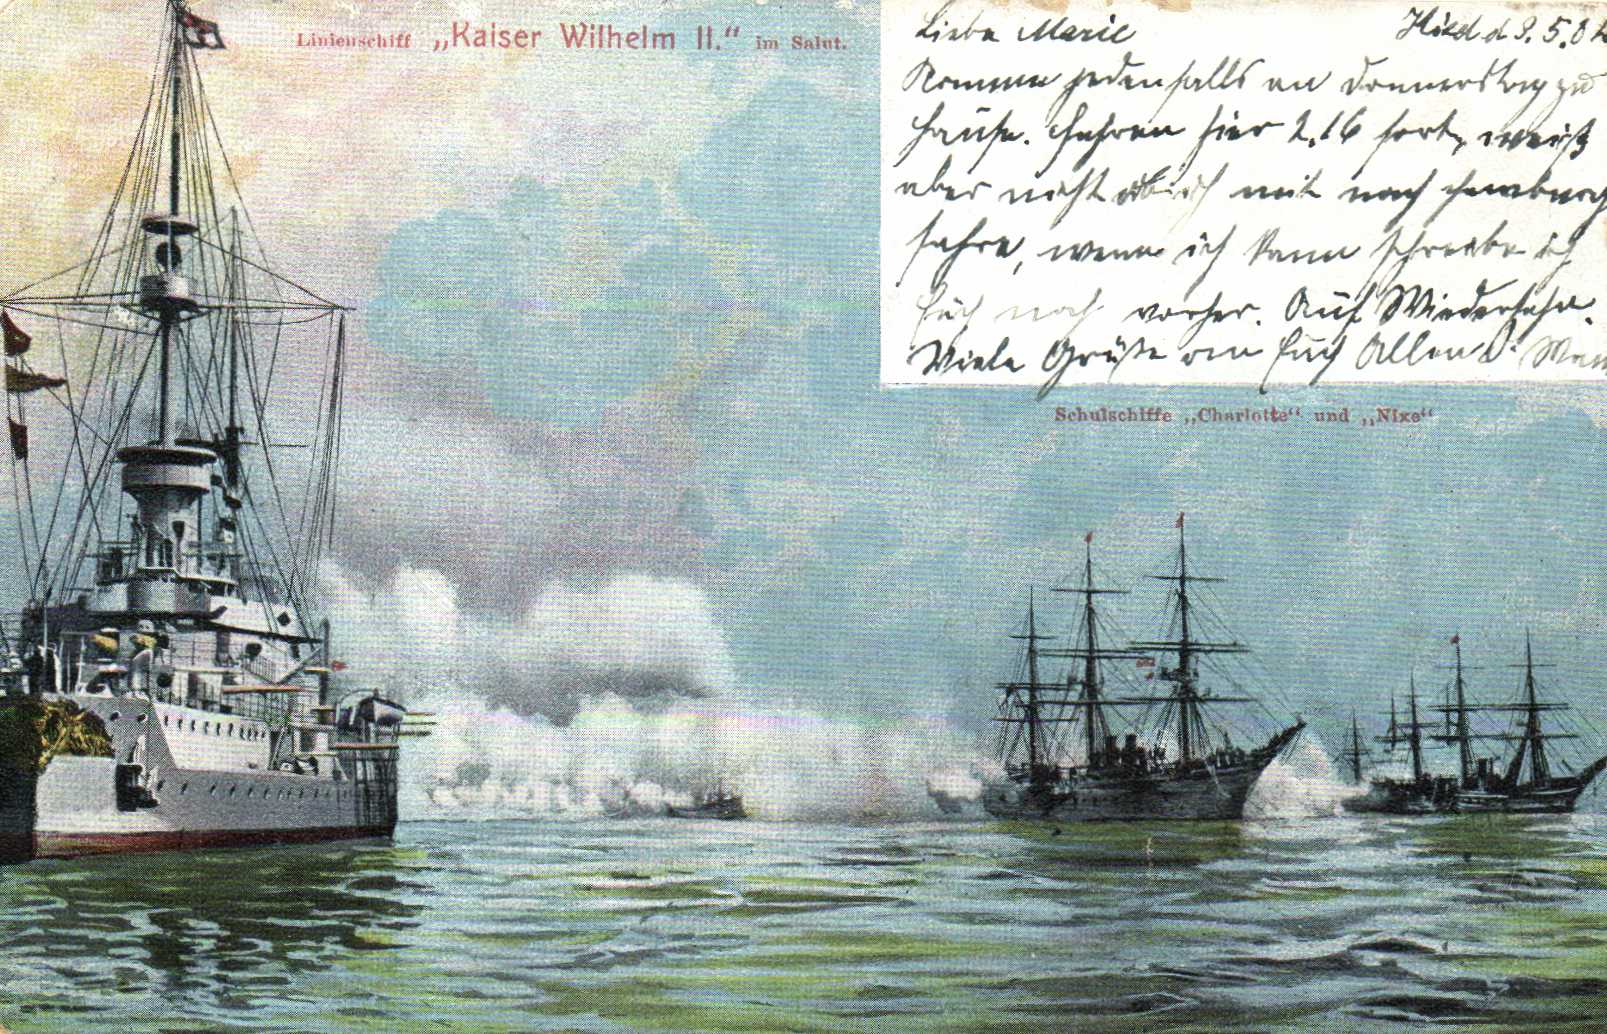 Linienschiff „Kaiser Wilhelm II.“ im Salut.
Liebe Marie
d 9. 5. 0
Komme jedenfalls an Donnerstag zu
Hause. Fahren hier 2.16 fort, weiß
aber nicht ob ich mit nach Hamburg
fahre, wenn ich kann schreibe ich
Euch noch vorher. Auf Wiedersehn.
Viele Grüße an Euch Allen
Schulschiffe „Charlotte“ und „Nixe“